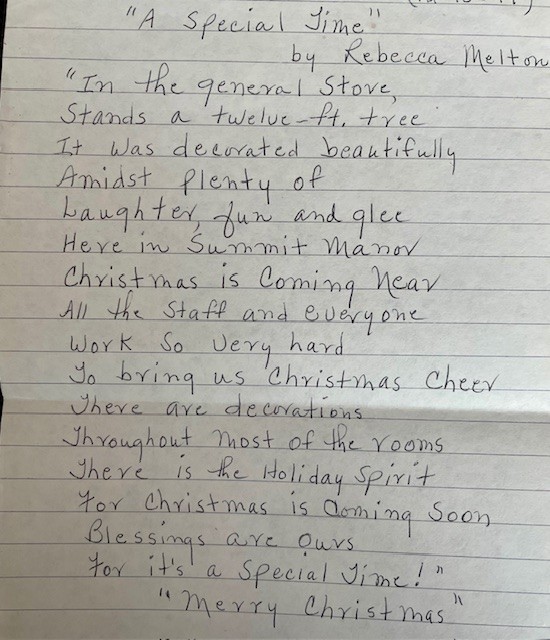 "A Special Time"
by Rebecca Melton
"In the general Store,
Stands a twelve-ft. tree
It was decorated beautifully
Amidst plenty of
Laughter, fun and glee
Here in Summit Manor
Christmas is Coming Near
All the Staff and everyone
Work So Very hard
To bring us Christmas Cheer
There are decorations
Throughout most of the rooms
There is the Holiday Spirit
For Christmas is Coming Soon
Blessings are ours
For it's a Special Time!"
"Merry Christmas"